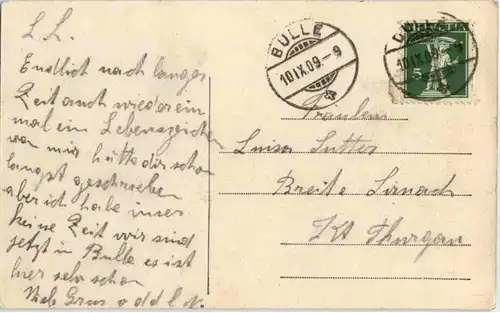 L. L.
Endlich nach langer
Zeit auch wieder ein
mal ein Lebenszeichen
von mir hätte dir schon
langst geschrieben
aber ich habe
keine Zeit wir sind
jetzt in Bulle es ist
hier sehr schön
Gruss
BULLE
10 IX.09-9
BULLE
10 IX.09-9
HELVETIA
5
Fräulein
Luisa Sutter
Breite Sirnach
Kt Thurgau